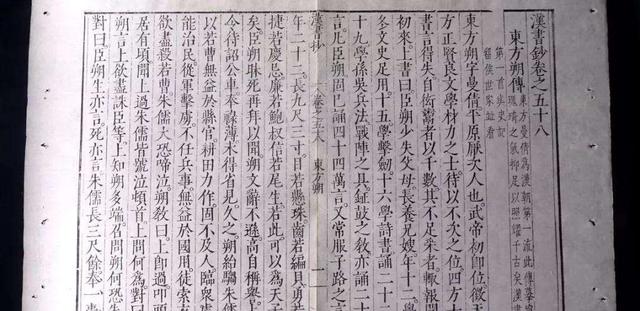 漢書鈔卷之五十八
東方朔傳
東方曼倩爲漢朝第一流此傳摹
瓌琦之氣抑足以照耀千古矣漢書
第一首與史記
留侯世家並看
東方朔字曼倩平原厭次人也武帝初即位徵天
方正賢良文學材力之士待以不次之位四方士
書言得失自衒鬻者以千數其不足采者輒報聞
來上書曰臣朔少失父母長養兄嫂年十三學
冬文史足用十五學擊劍十六學詩書誦二十
十九學孫吳兵法戰陣之具鉦鼓之敎亦誦二十
言凡臣朔固已誦四十四萬言又常服子路之言
漢書鈔 卷之五十八 東方朔 一
年二十二長九尺三寸目若懸珠齒若編貝勇若
捷若慶忌廉若鮑叔信若尾生若此可以爲天子
矣臣朔昧死再拜以聞朔文辭不遜高自稱譽上
令待詔公車奉祿薄未得省見久之朔紿騶朱儒
以若曹無益於縣官耕田力作固不及人臨衆處
能治民從軍擊虜不任兵事無益於國用徒索衣
欲盡殺若曹朱儒大恐啼泣朔敎曰上即過叩頭
居有頃聞上過朱儒皆號泣頓首上問何爲對曰
朔言上欲盡誅臣等上知朔多端召問朔何恐朱
對曰臣朔生亦言死亦言朱儒長三尺餘奉一囊